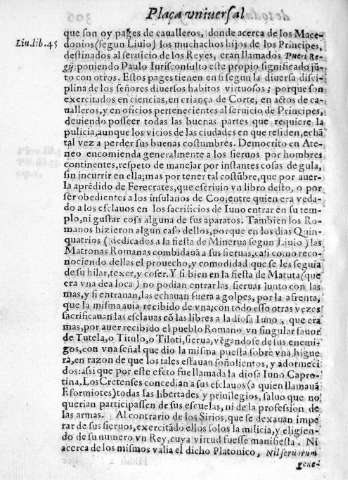 Plaça vniuersal
que son oy pages de caualleros, donde acerca de los Mace-
Liu. lib. 45
donios (segun Liuio) los muchachos hijos de los Principes,
destinados al seruicio de los Reyes, eran llamados Pueri Re-
gij poniendo Paulo Iurisconsulto el de proprio significado jū-
to con otros. Estos pages tienen en si segun la diuersa disci-
plina de los señores diuersos habitos virtuosos; porque son
exercitados en ciencias, en criança de Corte, en actos de ca-
ualleros, y en oficios pertenecientes al seruicio de Principes,
deuiendo posseer todas las buenas partes que requiere la
pulicia, aunque los vicios de las ciudades en que residen, echā
tal vez a perder sus buenas costumbres. Democrito en Ate-
neo encomienda generalmente a los sieruos por hombres
continentes, respeto de manejar por instantes cosas de gula,
sin incurrir en ella; mas por tener tal costūbre, que por auer-
la aprēdido de Ferecrates, que escriuio vn libro desto, o por
ser obedientes a los insulanos de Coo, entre quien era veda-
do a los esclauos en los sacrificios de Iuno entrar en su tem-
plo, ni gustar cosa alguna de sus aparatos. Tambien los Ro-
manos hizieron algun caso dellos, porque en los dias Quin-
quatrios (dedicados a la fiesta de Minerua segun Liuio) las
Matronas Romanas combidauā a sus sieruas, casi como reco-
nociendo dellas el prouecho, y comodidad que se les seguia
de su hilar, texer, y coser. Y si bien en la fiesta de Matuta (que
era vna dea loca) no podian entrar las sieruas junto con las
mas, y si entrauan, las echauan fuera a golpes, por la afrenta,
que la misma auia recibido de vna; con todo esso otras vezes
sacrificauan las esclauas cō las libres a la diosa Iuno, que era
mas, por auer recibido el pueblo Romano vn singular fauor
de Tutela, o Titulo, o Tiloti, sierua, vēgandose de los enemi-
gos, con vna señal que dio la misma puesta sobre vna higue
ra, en razon de que los tales estauan soñolientos, y adormeci
dos: assi que por este efeto fue llamada la diosa Iuno Capro-
tina. Los Cretenses concedian a sus esclauos (a quien llamauā
Eformiotes) todas las libertades y priuilegios, saluo que no
querian participassen de sus escuelas, ni de la profession de
las armas. Al contrario de los Sirios, que se dexauan impe
rar de sus sieruos, exercitādo ellos solos la milicia, y eligien-
do de su numero vn Rey, cuya virtud fuesse manifiesta. Ni
acerca de los mismos valia el dicho Platonico, Nil seruorum
gene-